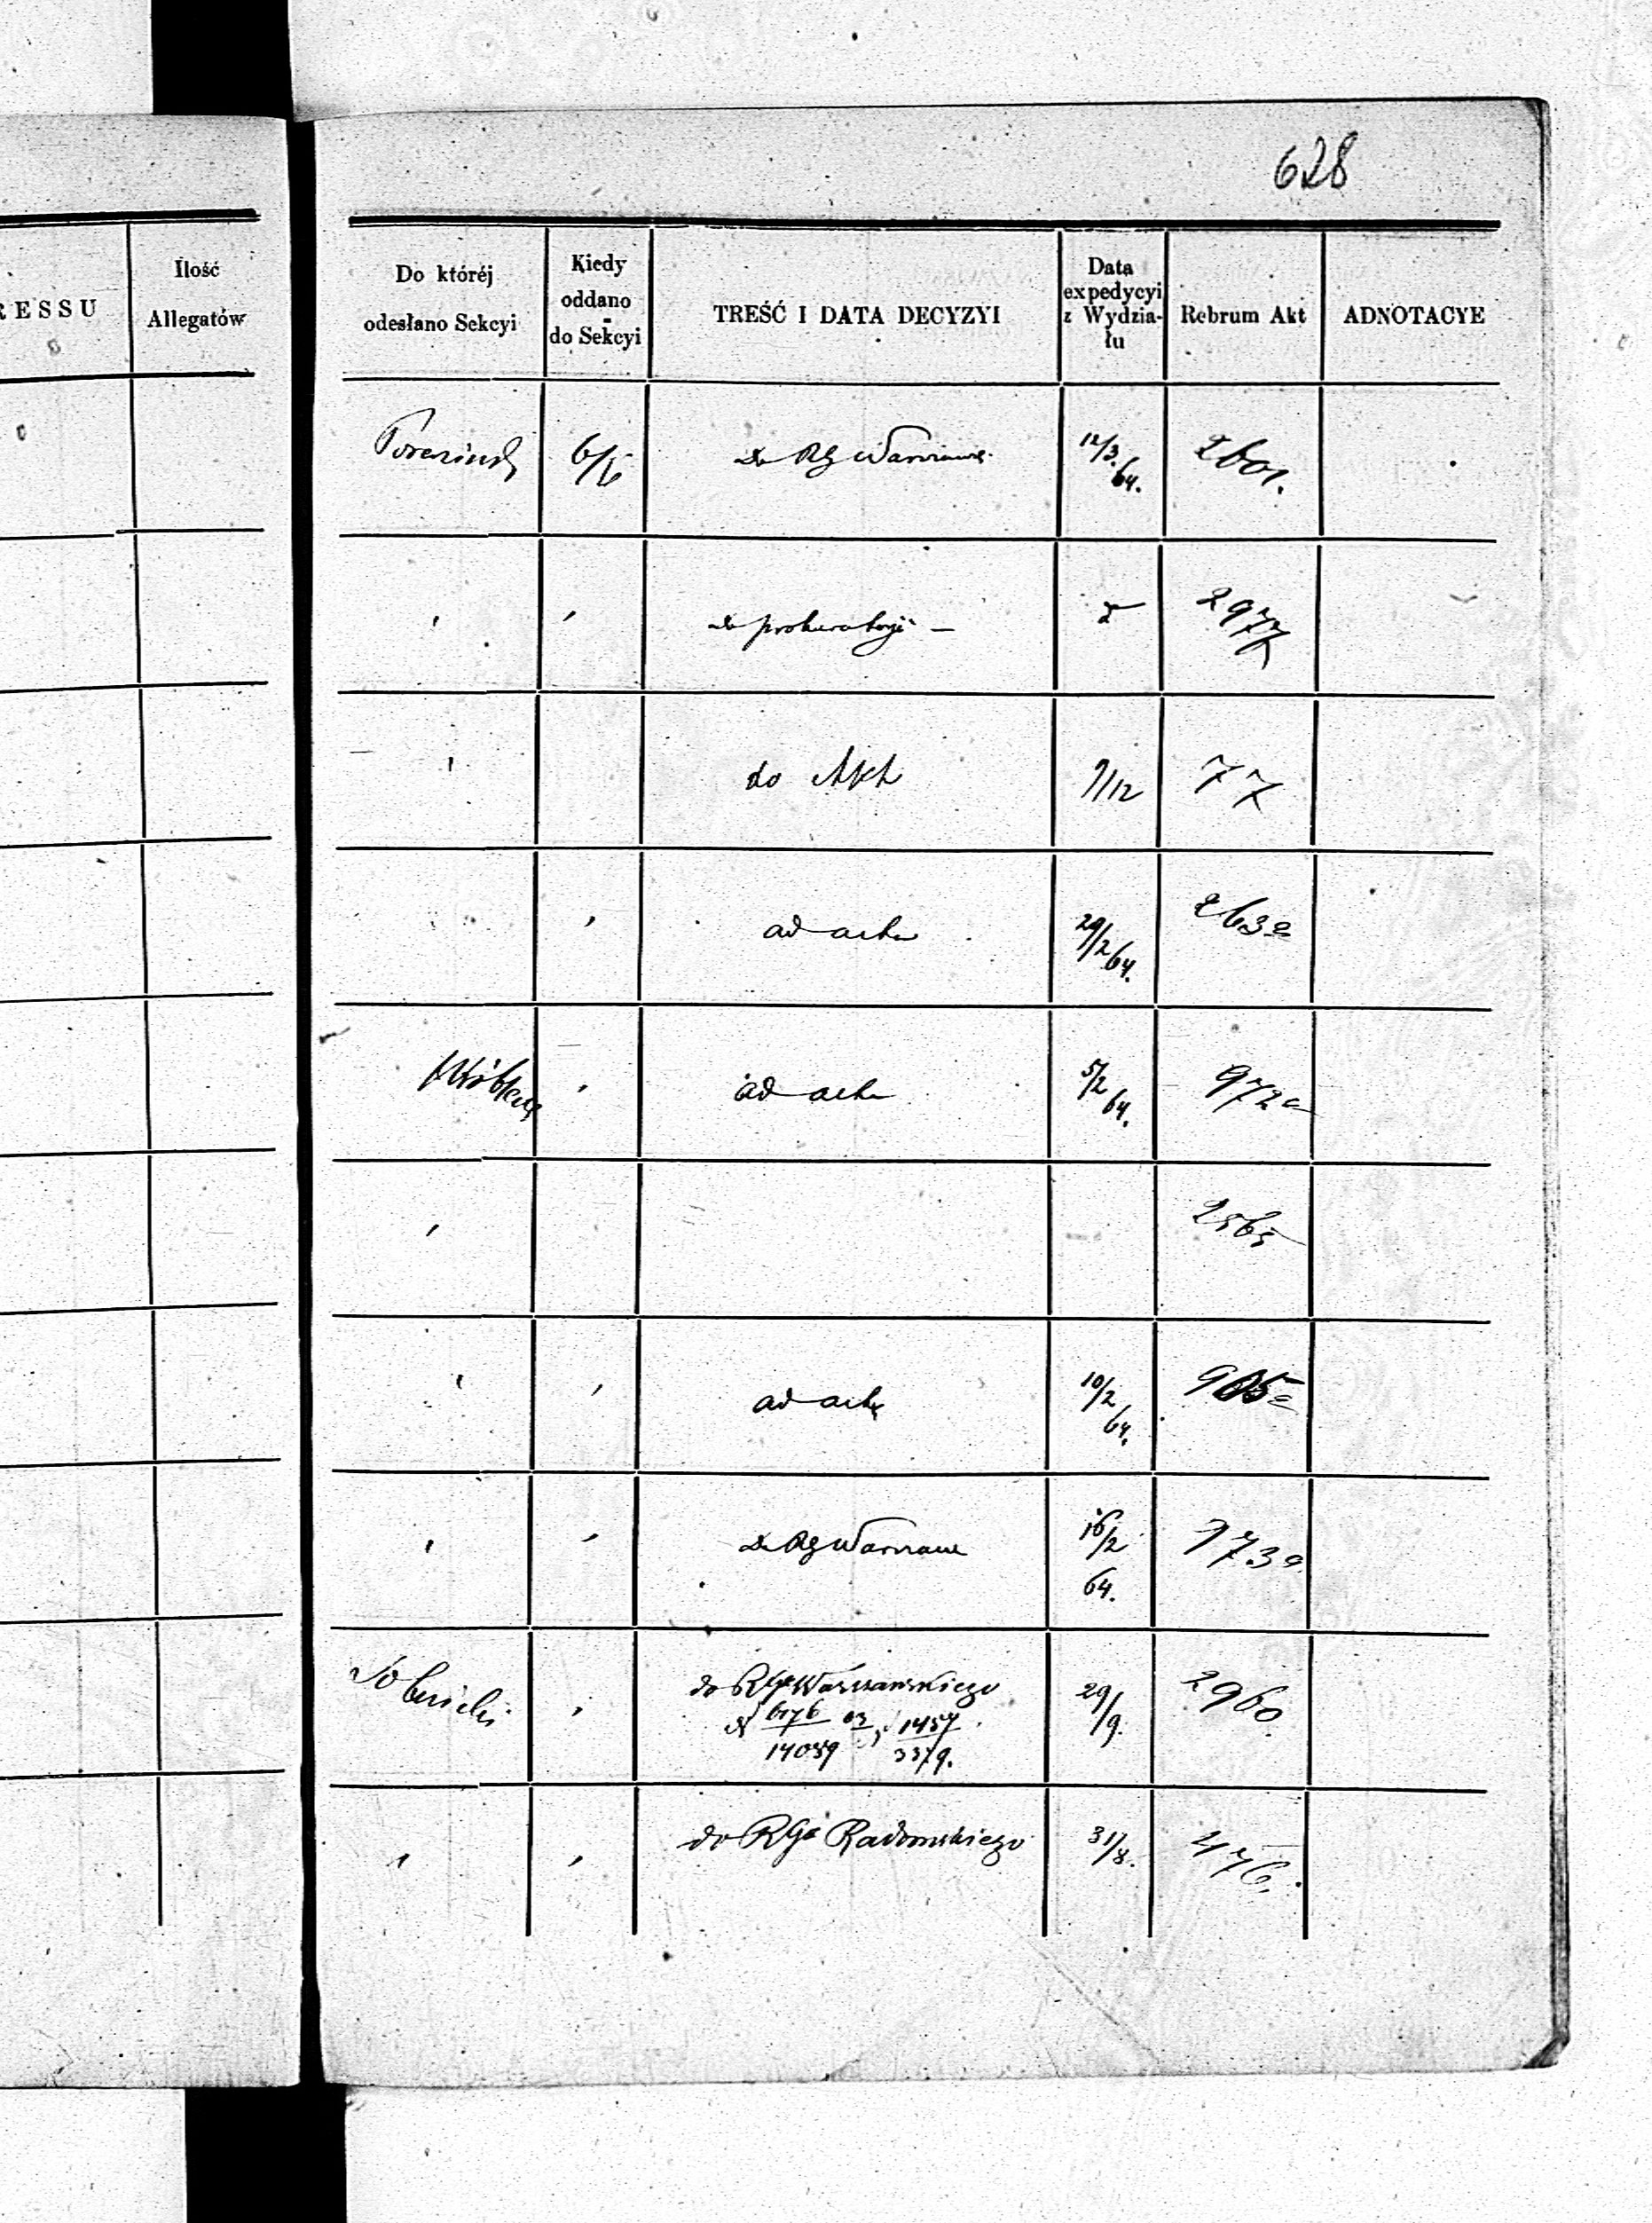 628
RESSU
Ilość
Allegatów
Do któréj
odesłano Sekcyi
Kiedy
oddano
do Sekcyi
TREŚĆ I DATA DECYZYI
Data
expedycyi
z Wydzia-
łu
Rebrum Akt
ADNOTACYE
do RG Warszaws.
12/3 64.
2601.
do prokuratoryi —
2977
do Akt
9/12
77
ad acta
29/2 64.
263a
ad acta
5/2 64.
972a
2565
ad acta
10/2 64.
do RG Warszaws
16/2 64.
973a
do RGo Warszawskiego
14039 3379.
29/9.
2960.
do RGo Radomskiego
31/8.
476.